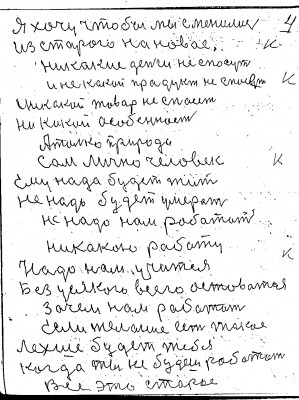 Я хочу чтобы мы сменились 4
из старого на новае, К
никакие дети не спосут
и не какой продукт не споет К
никакой товар не спасет
ни какой особенност
Атолко природа
Сам лично человек К
Ему нада будет жит
не надь будет умерат
не надо нам работат
никакою работу К
Надо нам учатся
Без целкого всего остоватся
Зачем нам работат
Если желание ест такое
Лехше будет тебя
когда ты не будеш работат
Все это старое